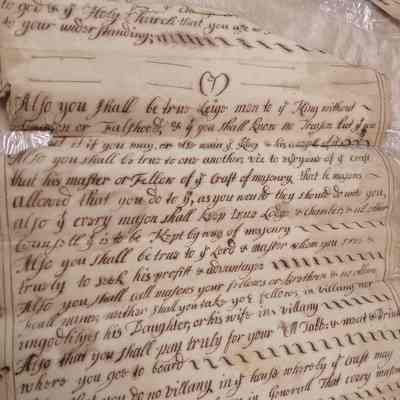 to god & yͤ Holy Church that you are
to your understanding;
(7)
Also you shall be true Leige men to yͤ King without
Treason or Falshood, & yͭ you shall know no Treason but yͭ you
it if you may, or else warn yͤ King &
Also you shall be true to one another, viz to every one of yͤ craft
that his master or Fellow of yͤ Craft of masonry, that be masons
allowed that you do to yͫ, as you would they should do unto you,
also yͭ every mason shall keep true Lodge & chamber, & all other
Councell yͭ is to be Kept by way of masonry
Also you shall be true to yͤ Lord & master whom you
truely to seek his profitt & advantages
Also you shall call masons your fellows or Brethren & no other
names, neither shall you take yoͬ fellows in villany nor
ungodly his Daughter, or his wife in villany
Also that you shall pay truly for your Table, & meat & Drink
where you goe to board
that you do no villany in yͤ house whereby yͤ craft may
in Generall That every mason